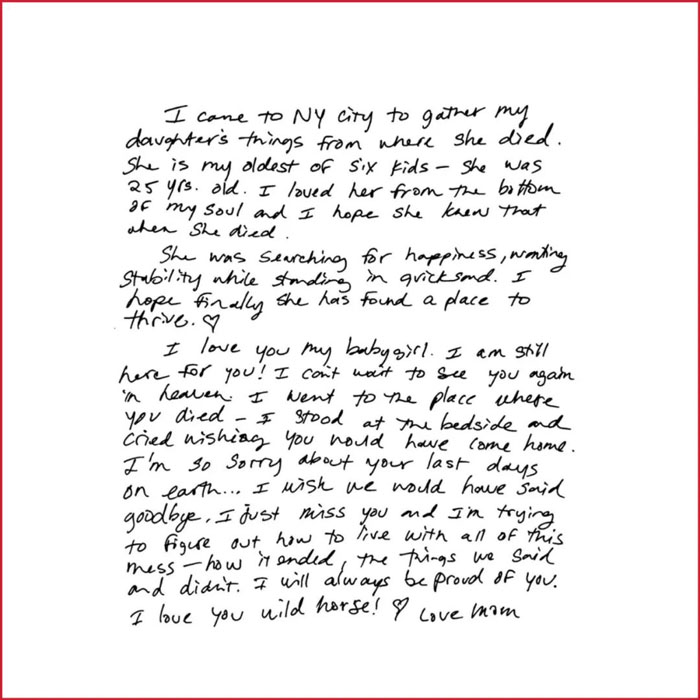 I came to NY city to gather my
daughter's things from where she died.
She is my oldest of six kids – she was
25 yrs. old. I loved her from the bottom
of my soul and I hope she knew that
when she died.
She was searching for happiness, wanting
stability while standing in quicksand. I
hope finally she has found a place to
thrive. ♡
I love you my babygirl. I am still
here for you! I can't wait to see you again
in heaven. I went to the place where
you died – I stood at the bedside and
cried wishing you would have come home.
I'm so sorry about your last days
on earth... I wish we would have said
goodbye. I just miss you and I'm trying
to figure out how to live with all of this
mess – how it ended, the things we said
and didn't. I will always be proud of you.
I love you wild horse! ♡ Love Mom